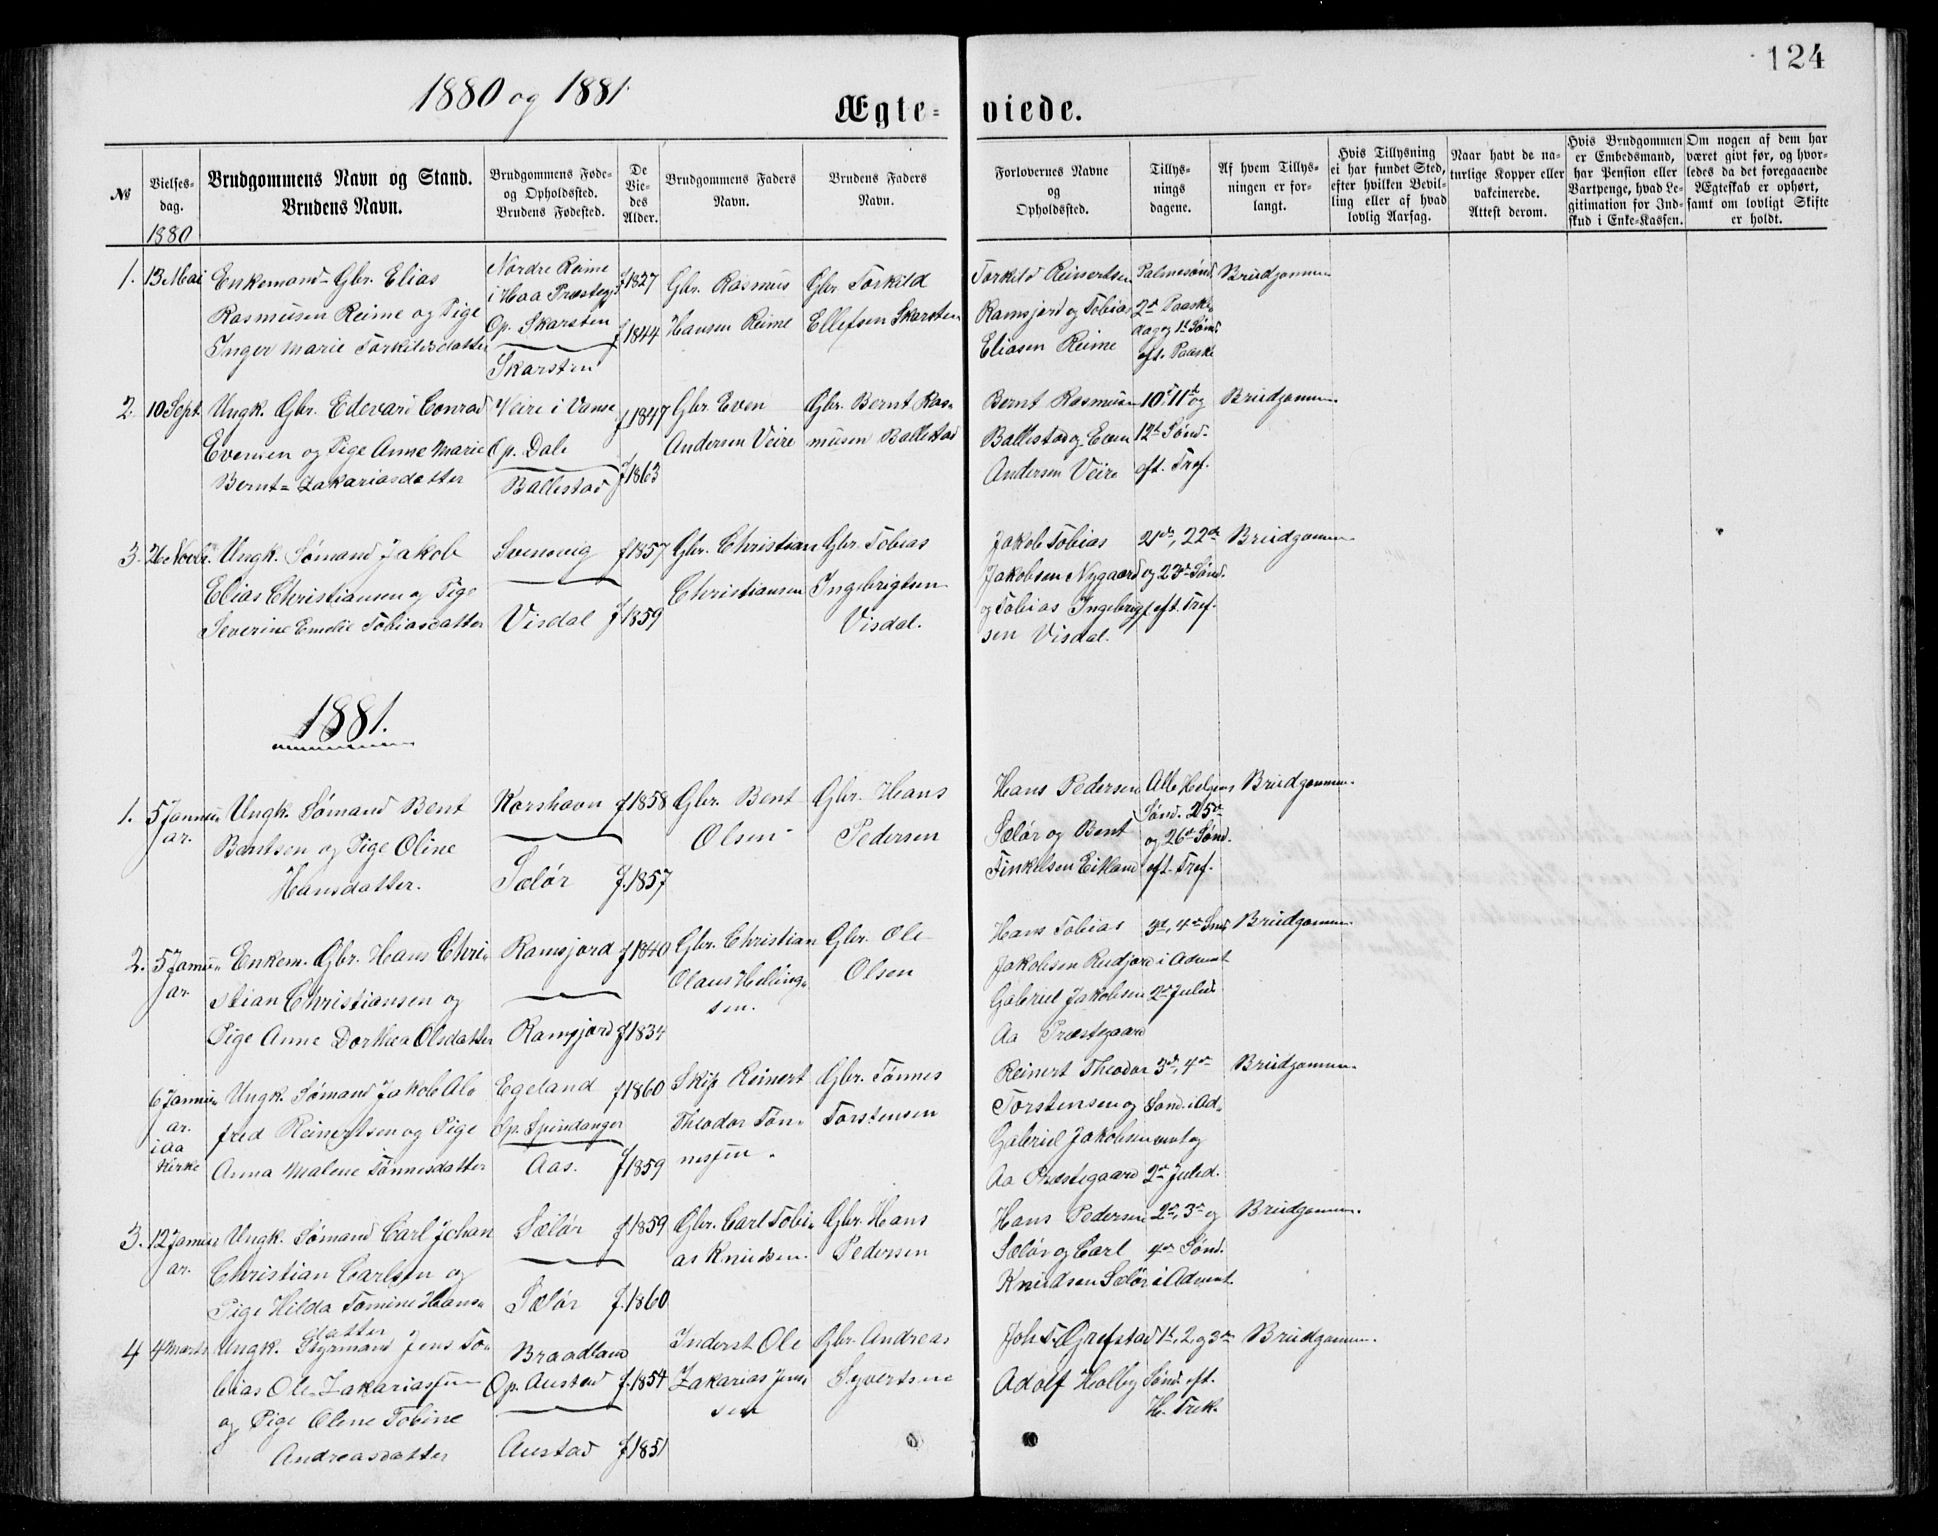 124
1880 og 1881
Ægte-
viede.
№
Vielses-
dag.
1880
Brudgommens Navn og Stand.
Brudens Navn.
Brudgommens Føde-
og Opholdssted.
Brudens Fødested.
De
Vie-
des
Alder.
Brudgommens Faders
Navn.
Brudens Faders
Navn.
Forlovernes Navne
og
Opholdssted.
Tillys-
nings
dagene.
Af hvem Tillys-
ningen er for-
langt.
Hvis Tillysning
ei har fundet Sted,
efter hvilken Bevil-
ling eller af hvad
lovlig Aarsag.
Naar havt de na-
turlige Kopper eller
vakcinerede.
Attest derom.
Hvis Brudgommen
er Embedsmand,
har Pension eller
Vartpenge, hvad Le-
gitimation for Ind-
skud i Enke-Kassen.
Om nogen af dem har
været givt før, og hvor-
ledes da det foregaaende
Ægteskab er ophørt,
samt om lovligt Skifte
er holdt.
1. 13 Mai
Enkemand Gbr. Elias
Rasmusen Reime og Pige
Inger Marie Torkildsdatter
Nordre Reime
i Haa Præstegj.
Op. Skarsten
Skarsten
f 1827
f 1844
Gbr. Rasmus
Hansen Reime
Gbr. Torkild
Ellefsen Skarsten
Torkild Reinertsen
Ramsjord og Tobias
Eliasen Reime
Palmesønd.
2d Paaske-
dag og 1st Sønd.
eft. Paaske
Brudgommen
2. 10 Sept.
Ungk. Gbr. Edevart Conrad
Evensen og Pige Anne Marie
Bernt-Zakariasdatter
Veire i Vanse
Op. Dale
Ballestad
f 1847
f 1863
Gbr. Even
Andersen Veire
Gbr. Bernt Ras-
musen Ballestad
Bernt Rasmusen
Ballestad og Even
Andersen Veire
10d, 11te og
12te Sønd.
eft. Tref.
Brudgommen
3. 26 Novbr.
Ungk. Sømand Jakob
Elias Christiansen og Pige
Severine Emelie Tobiasdatter
Svennevig
Visdal
f 1857
f 1859
Gbr. Christian
Christiansen
Gbr. Tobias
Ingebrigtsen
Visdal.
Jakob Tobias
Jakobsen Nygaard
og Tobias Ingebrigt-
sen Visdal.
21de, 22de
og 23de Sønd.
eft. Tref.
Brudgommen
1881.
1. 5 Janu-
ar.
Ungk. Sømand Bent
Bentsen og Pige Oline
Hansdatter.
Korshavn
Sælør
f 1858
f. 1857
Gbr. Bent
Olsen
Gbr. Hans
Pedersen
Hans Pedersen
Sælør og Bent
Finkelsen Eikland
Alle Helgens
Sønd. 25de
og 26de Sønd.
eft. Tref.
Brudgommen.
2. 5 Janu-
ar.
Enkem. Gbr. Hans Chri-
stian Christiansen og
Pige Anne Dorthea Olsdatter
Ramsjord
Ramsjord
f 1840
f 1834
Gbr. Christian
Olaus Helling-
sen.
Gbr. Ole
Olsen
Hans Tobias
Jakobsen Rudjord
Gabriel Jakobsen
Aa Præstegaard
3d, 4de Sønd.
i Advent
2d Juled.
Brudgommen.
6 Janu-
ar.
i Aa
Kirke
Ungk. Sømand Jakob Al-
fred Reinertsen og Pige
Anna Malene Tønnesdatter
Egeland
Op. Spindanger
Aas.
f 1860
f 1859
Skip. Reinert
Theodor Tøn-
nesen.
Gbr. Tønnes
Torstensen
Reinert Theodor
Torstensen og
Gabriel Jakobsen
Aa Præstegaard
3de, 4de
Sønd. i Ad-
vent og
2d Juled.
Brudgommen.
3. 12 Janu-
ar.
Ungk. Sømand Carl Johan
Christian Carlsen og
Pige Hilda Tomine Hans-
datter
Sælør
Sælør
f 1859
f. 1860
Gbr. Carl Tobi-
as Knudsen.
Gbr. Hans
Pedersen
Hans Pedersen
Sælør og Carl
Knudsen Sælør
2d, 3d og
4de Sønd.
i Advent
Brudgommen.
4 4 Marts
Ungk. Styrmand Jens To-
bias Ole-Zakariassen
og Pige Olene Tobine
Andreasdatter
Braadland
Op. Austad
Austad
f. 1854
f 1851
Inderst Ole
Zakarias Jen-
sen
Gbr. Andreas
Syvertsen
Joh. T. Grefstad
Adolf Halby
1st, 2, og 3de
Sønd. eft.
H. Trek.
Brudgommen.